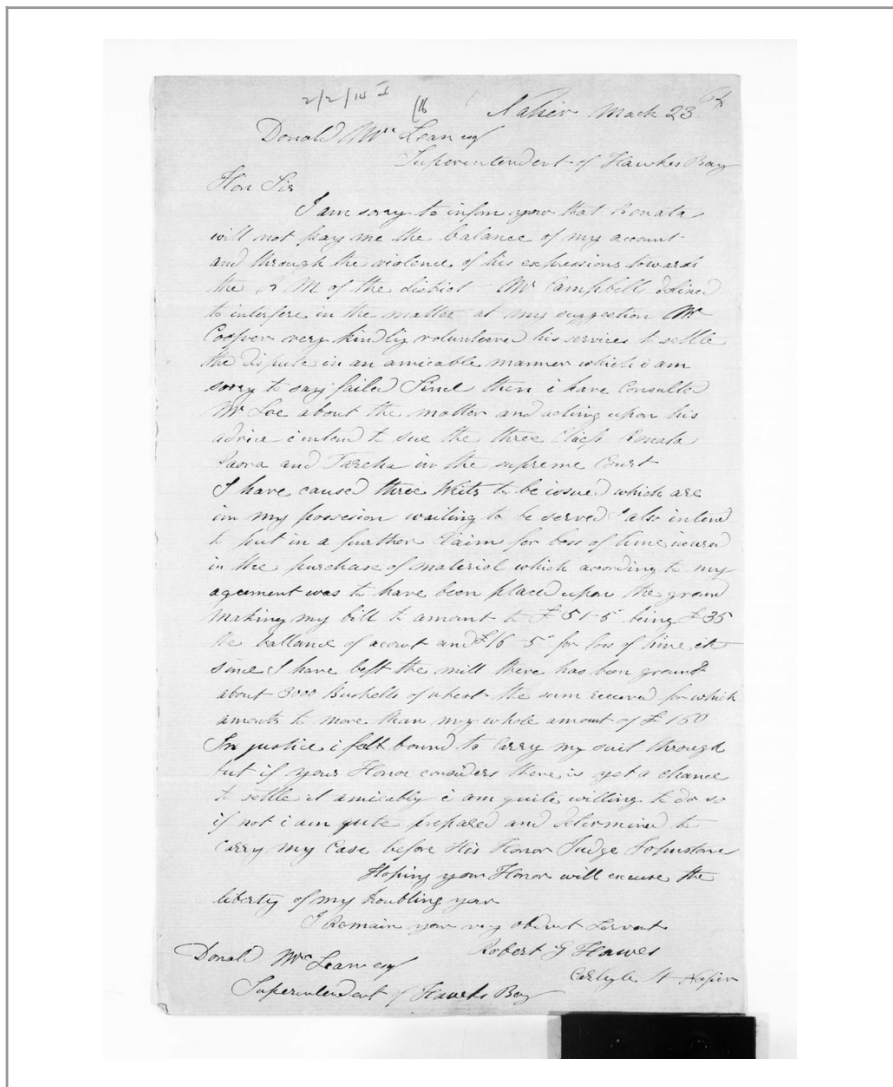 2/2/14 I (16
Napier March 23 64
Donald McLean esq
Superintendent of Hawkes Bay
Hon Sir
I am sorry to infom you that Renata
will not pay me the balance of my account
and through the violence of his expressions towards
the R M of the district Mr Campbell declined
to interfere in the matter at my suggestion Mr
Cooper very kindly volunteered his services to settle
the dispute in an amicable manner which i am
sorry to say failed Since then i have Consulted
Mr Lee about the matter and acting upon his
advice i intend to sue the three Chiefs Renata
Paora and Tareha in the supreme Court
I have caused three Writs to be issued which are
in my possesion waiting to be served I also intend
to put in a further Claim for loss of time incured
in the purchase of material which acording to my
agreement was to have been placed upon the ground
making my bill to amount to £51-5 being £35
the ballance of acount and £16-5 for loss of time etc
since I have left the mill there has been ground
about 3000 Bushells of wheat the sum received for which
amounts to more than my whole amount of £150
In justice i felt bound to Carry my suit through
but if your Honor considers there is yet a chance
to settle it amicably i am quite willing to do so
if not i am quite prepared and determined to
carry my Case before His Honor Judge Johnstone
Hoping your Honor will excuse the
liberty of my troubling you
I Remain your very obedient Servant
Robert G Hawes
Carlyle St Napier
Donald McLean esq
Superintendent of Hawkes Bay